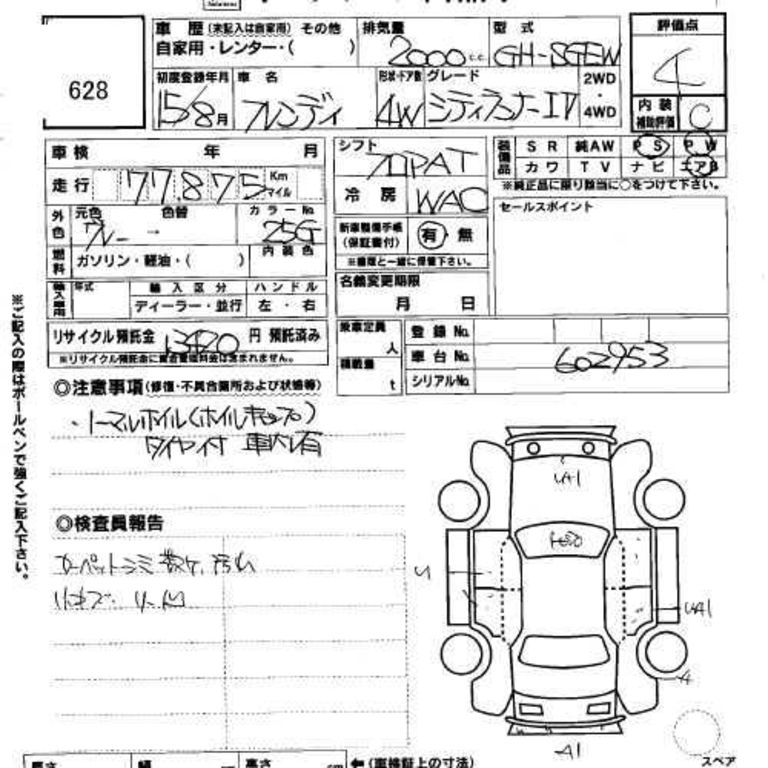 628
車歴(未記入は自家用) その他
自家用・レンター・( )
排気量
2000 c.c.
型式
GH-SGEW
評価点
4
初度登録年月
15/8月
車名
フレンディ
形状・ドア数
4W
グレード
シティランナーIV
2WD
・
4WD
内装
補助評価
C
車検 年 月
走行
77,875 Km
マイル
外色
元色 色替 カラーNo.
グレー → 25G
燃料
ガソリン・軽油・( )
内装色
輸入車用
年式
輸入区分
ディーラー・並行
ハンドル
左・右
シフト
フロアAT
冷房
WAC
新車整備手帳
(保証書付)
有・無
※書類と一緒に保管下さい。
名義変更期限
月 日
装備品
SR 純AW PS PW
カワ TV ナビ エアB
※純正品に限り該当に○をつけて下さい。
セールスポイント
リサイクル預託金 13420 円 預託済み
※リサイクル預託金に資金管理料金は含まれません。
乗車定員
人
積載量
t
登録No.
車台No. 602953
シリアルNo.
◎注意事項(修復・不具合箇所および状態等)
・ノーマルホイル(ホイルキャップ)
タイヤ付 車内に有
◎検査員報告
カーペットシミ
※ご記入の際はボールペンで強くご記入下さい。
U+1
U
UA1
A
A1
スペア
長さ
幅
高さ
cm
←(車検証上の寸法)